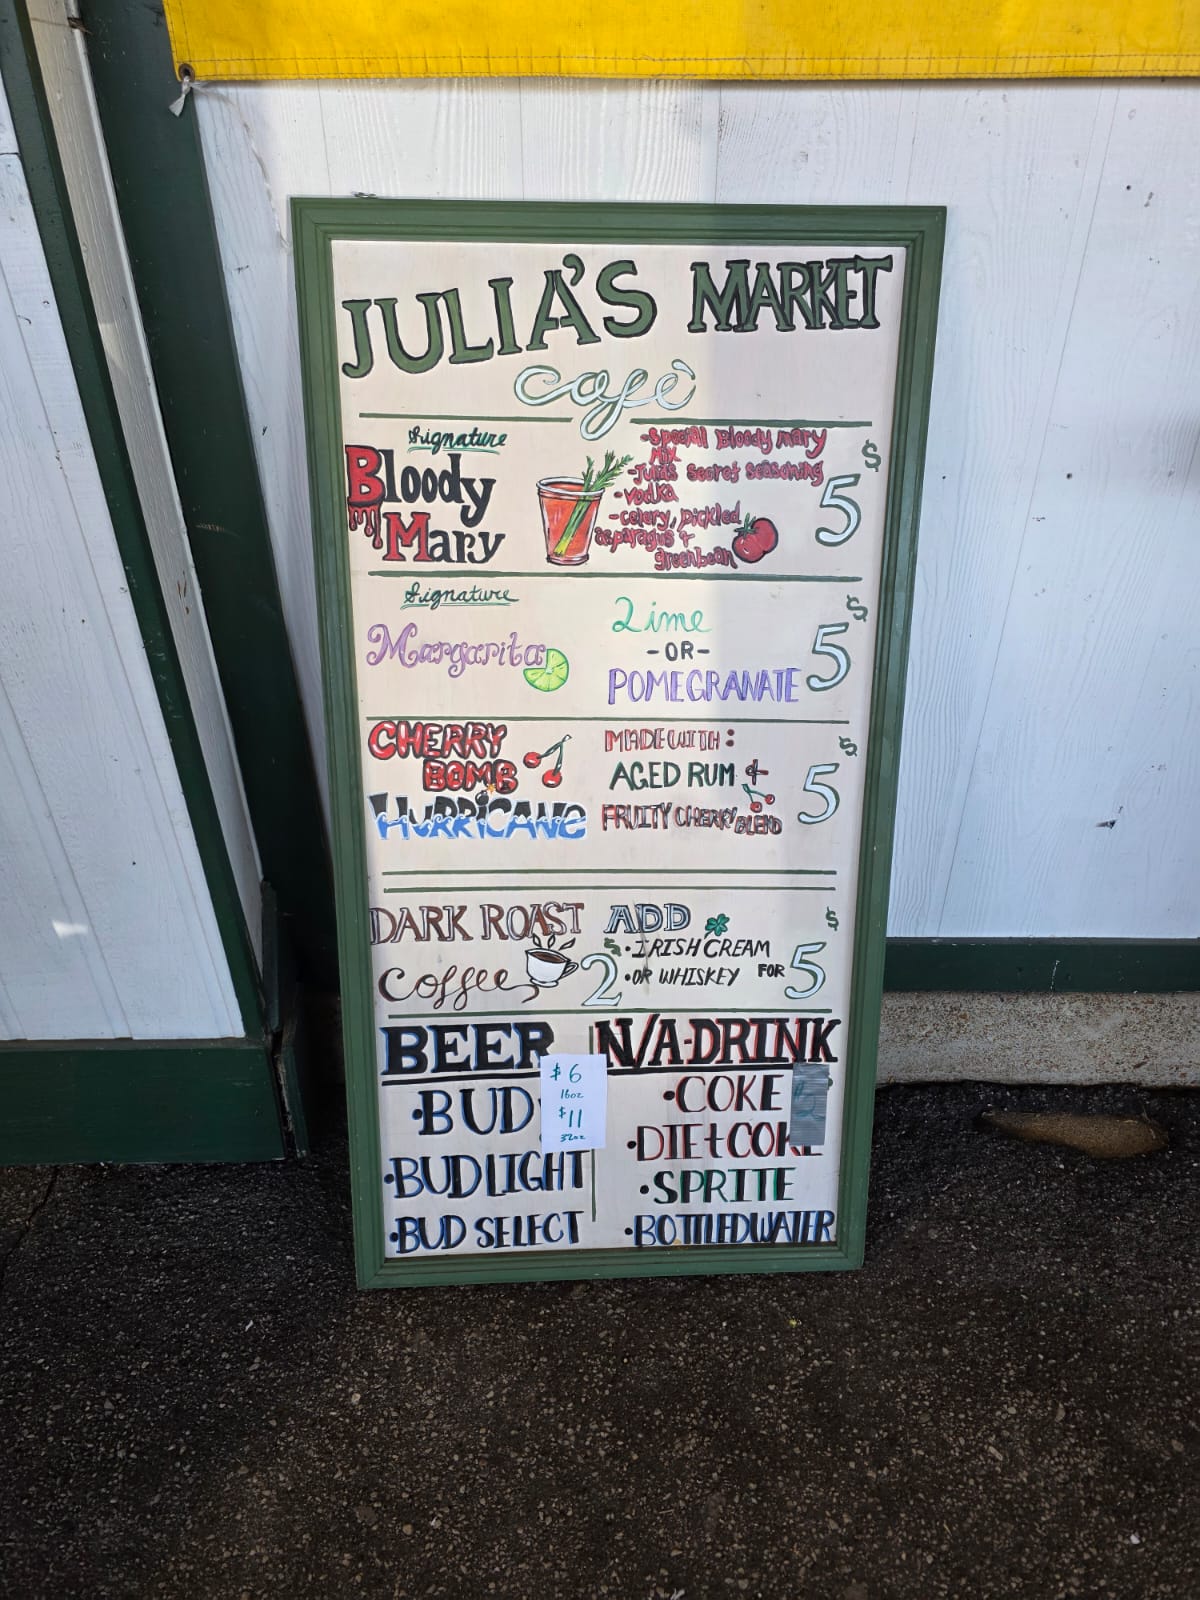 JULIA'S MARKET
café
Signature
Bloody
Mary
-Special Bloody mary
Mix
-Julia's secret seasoning
-vodka
-celery, pickled
asparagus &
greenbean
$5
Signature
Margarita
Lime
-OR-
POMEGRANATE
$5
CHERRY
BOMB
HURRICANE
MADE WITH:
AGED RUM &
FRUITY CHERRY BLEND
$5
DARK ROAST
Coffee
$2
ADD
•IRISH CREAM
•OR WHISKEY
FOR $5
BEER
$6
16oz
$11
32oz
•BUD
•BUD LIGHT
•BUD SELECT
N/A-DRINK
•COKE
•DIET COKE
•SPRITE
•BOTTLED WATER